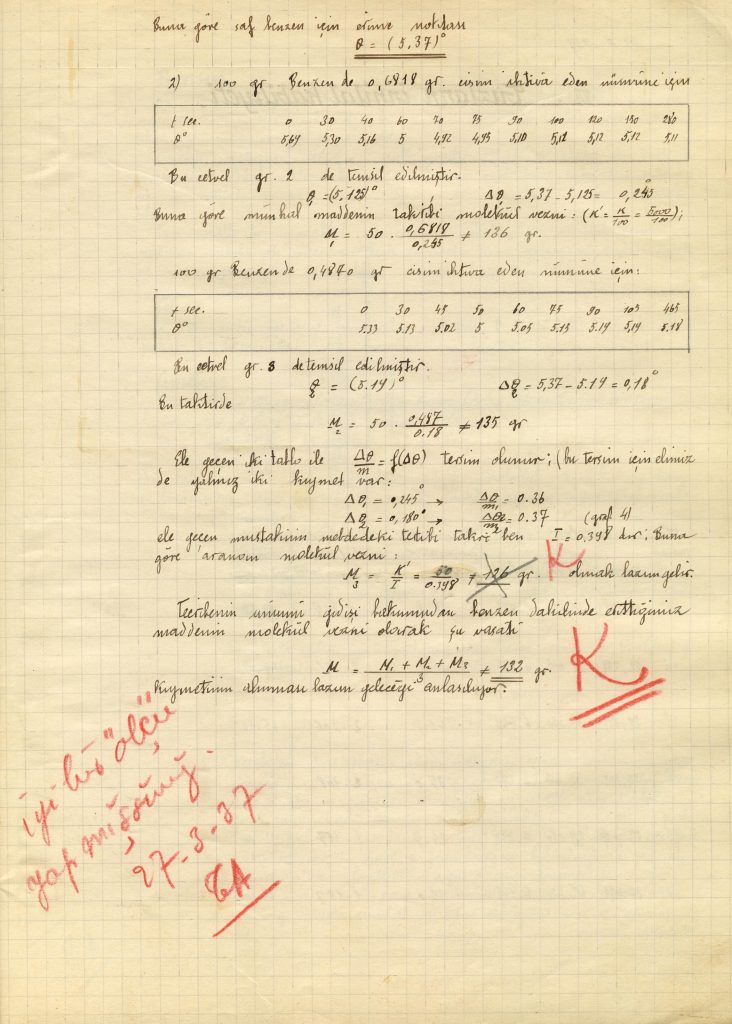 Buna göre saf benzen için erime noktası
θ = (5,37)°
2) 100 gr. Benzen de 0,6818 gr. cisim ihtiva eden nümune için
t sec. 0 30 40 60 70 75 90 100 120 150 280
θ° 5,69 5,30 5,16 5 4,92 4,95 5,10 5,12 5,12 5,12 5,11
Bu cetvel gr. 2 de temsil edilmiştir.
θ₁ = (5,125)° Δθ₁ = 5,37 - 5,125 = 0,245°
Buna göre münhal maddenin takribi molekül vezni : (K' = K/100 = 5000/100);
M₁ = 50 . 0,6818/0,245 ≠ 136 gr.
100 gr Benzende 0,4870 gr cisim ihtiva eden nümune için:
t sec. 0 30 45 50 60 75 90 105 465
θ° 5.33 5.13 5.02 5 5.05 5.15 5.19 5,19 5.18
Bu cetvel gr. 3 de temsil edilmiştir.
θ₂ = (5.19)° Δθ₂ = 5,37 - 5.19 = 0,18°
Bu taktirde
M₂ = 50 . 0,487/0.18 ≠ 135 gr
Ele geçen iki tablo ile Δθ/m = f(Δθ) tersim olunur; (bu tersim için elimiz
de yalnız iki kıymet var:
Δθ₁ = 0,245° → Δθ₁/m₁ = 0.36
Δθ₂ = 0,180° → Δθ₂/m₂ = 0.37 (graf 4)
ele geçen mustakimin mebdedeki tertibi takriben I = 0.398 dır; Buna
göre aranan molekül vezni :
M₃ = K'/I = 50/0.398 ≠ 126 gr. K olmak lazımgelir.
Tecrübenin umumi gidişi bakımından benzen dahilinde erittiğimiz
maddenin molekül vezni olarak şu vasati
M = M₁ + M₂ + M₃/3 ≠ 132 gr. K
kıymetinin alınması lazım geleceği anlaşılıyor.
iyi bir "ölçü
yapmışsınız.
27-3-37